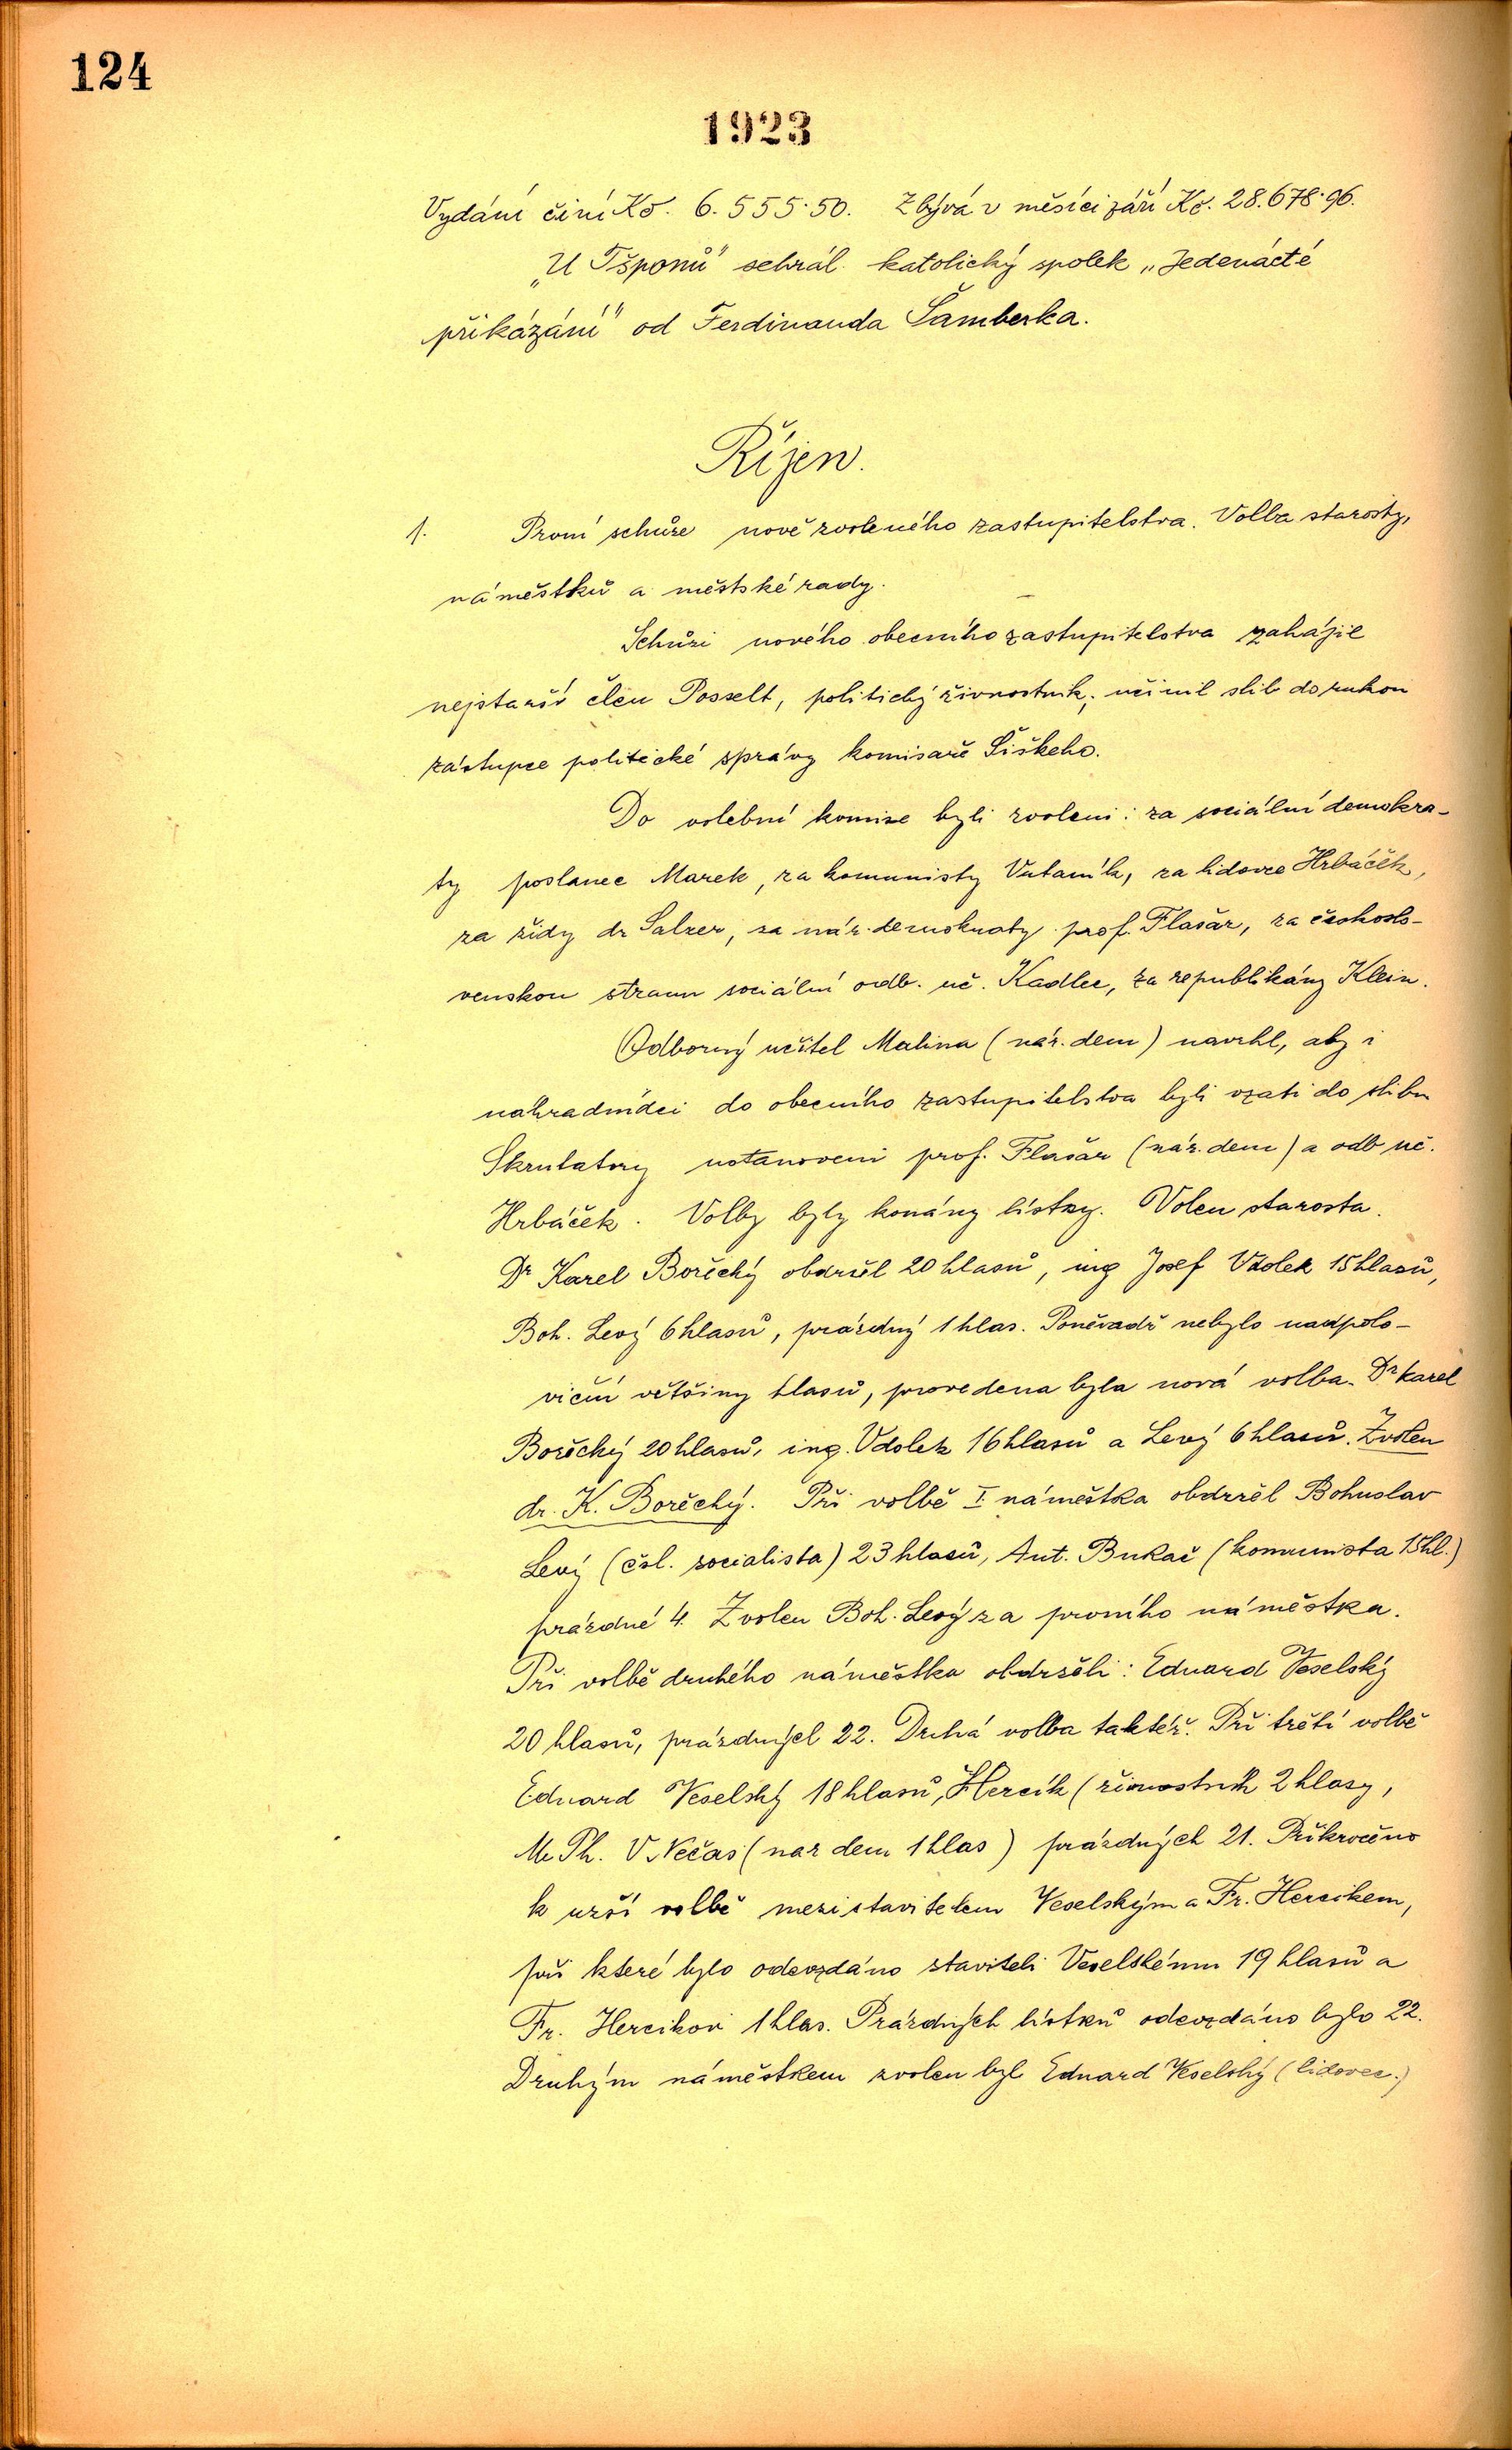 124
1923
Vydání činí Kč. 6.555·50. Zbývá v měsíci září Kč. 28.678·96.
„U Tšponů" sehrál katolický spolek „Jedenácté
přikázání" od Ferdinanda Šamberka.
Říjen.
1. První schůze nově zvoleného zastupitelstva. Volba starosty,
náměstků a městské rady.
Schůzi nového obecního zastupitelstva zahájil
nejstarší člen Posselt, politický živnostník, učinil slib do rukou
zástupce politické správy komisaře Šiškeho.
Do volební komise byli zvoleni: za sociální demokra-
ty poslanec Marek, za komunisty, za lidovce Hrbáček,
za židy dr Salzer, za nár. demokraty prof. Flasar, za českoslo-
venskou stranu sociální odb. uč. Kadlec, za republikány Klein.
Odborný učitel Malina (nár. dem) navrhl, aby i
náhradníci do obecního zastupitelstva byli vzati do slibu
Skrutatory ustanoveni prof. Flasar (nár. dem) a odb uč.
Hrbáček. Volby byly konány lístky. Volen starosta.
Dr Karel Bořecký obdržel 20 hlasů, ing Josef Vdolek 15 hlasů,
Boh. Levý 6 hlasů, prázdný 1 hlas. Poněvadž nebylo nadpolo-
viční většiny hlasů, provedena byla nová volba. Dr Karel
Bořecký 20 hlasů, ing. Vdolek 16 hlasů a Levý 6 hlasů. Zvolen
dr. K. Bořecký. Při volbě I. náměstka obdržel Bohuslav
Levý (čsl. socialista) 23 hlasů, Ant. Bukač (komunista 15 hl.)
prázdné 4. Zvolen Boh. Levý za prvního náměstka.
Při volbě druhého náměstka obdrželi: Eduard Veselský
20 hlasů, prázdných 22. Druhá volba taktéž. Při třetí volbě
Eduard Veselský 18 hlasů, Hercík (živnostník 2 hlasy,
Mr Ph. V. Nečas (nar dem 1 hlas) prázdných 21. Přikročeno
k užší volbě mezi stavitelem Veselským a Fr. Hercikem,
při které bylo odevzdáno staviteli Veselskému 19 hlasů a
Fr. Hercikovi 1 hlas. Prázdných lístků odevzdáno bylo 22.
Druhým náměstkem zvolen byl Eduard Veselský (lidovec.)